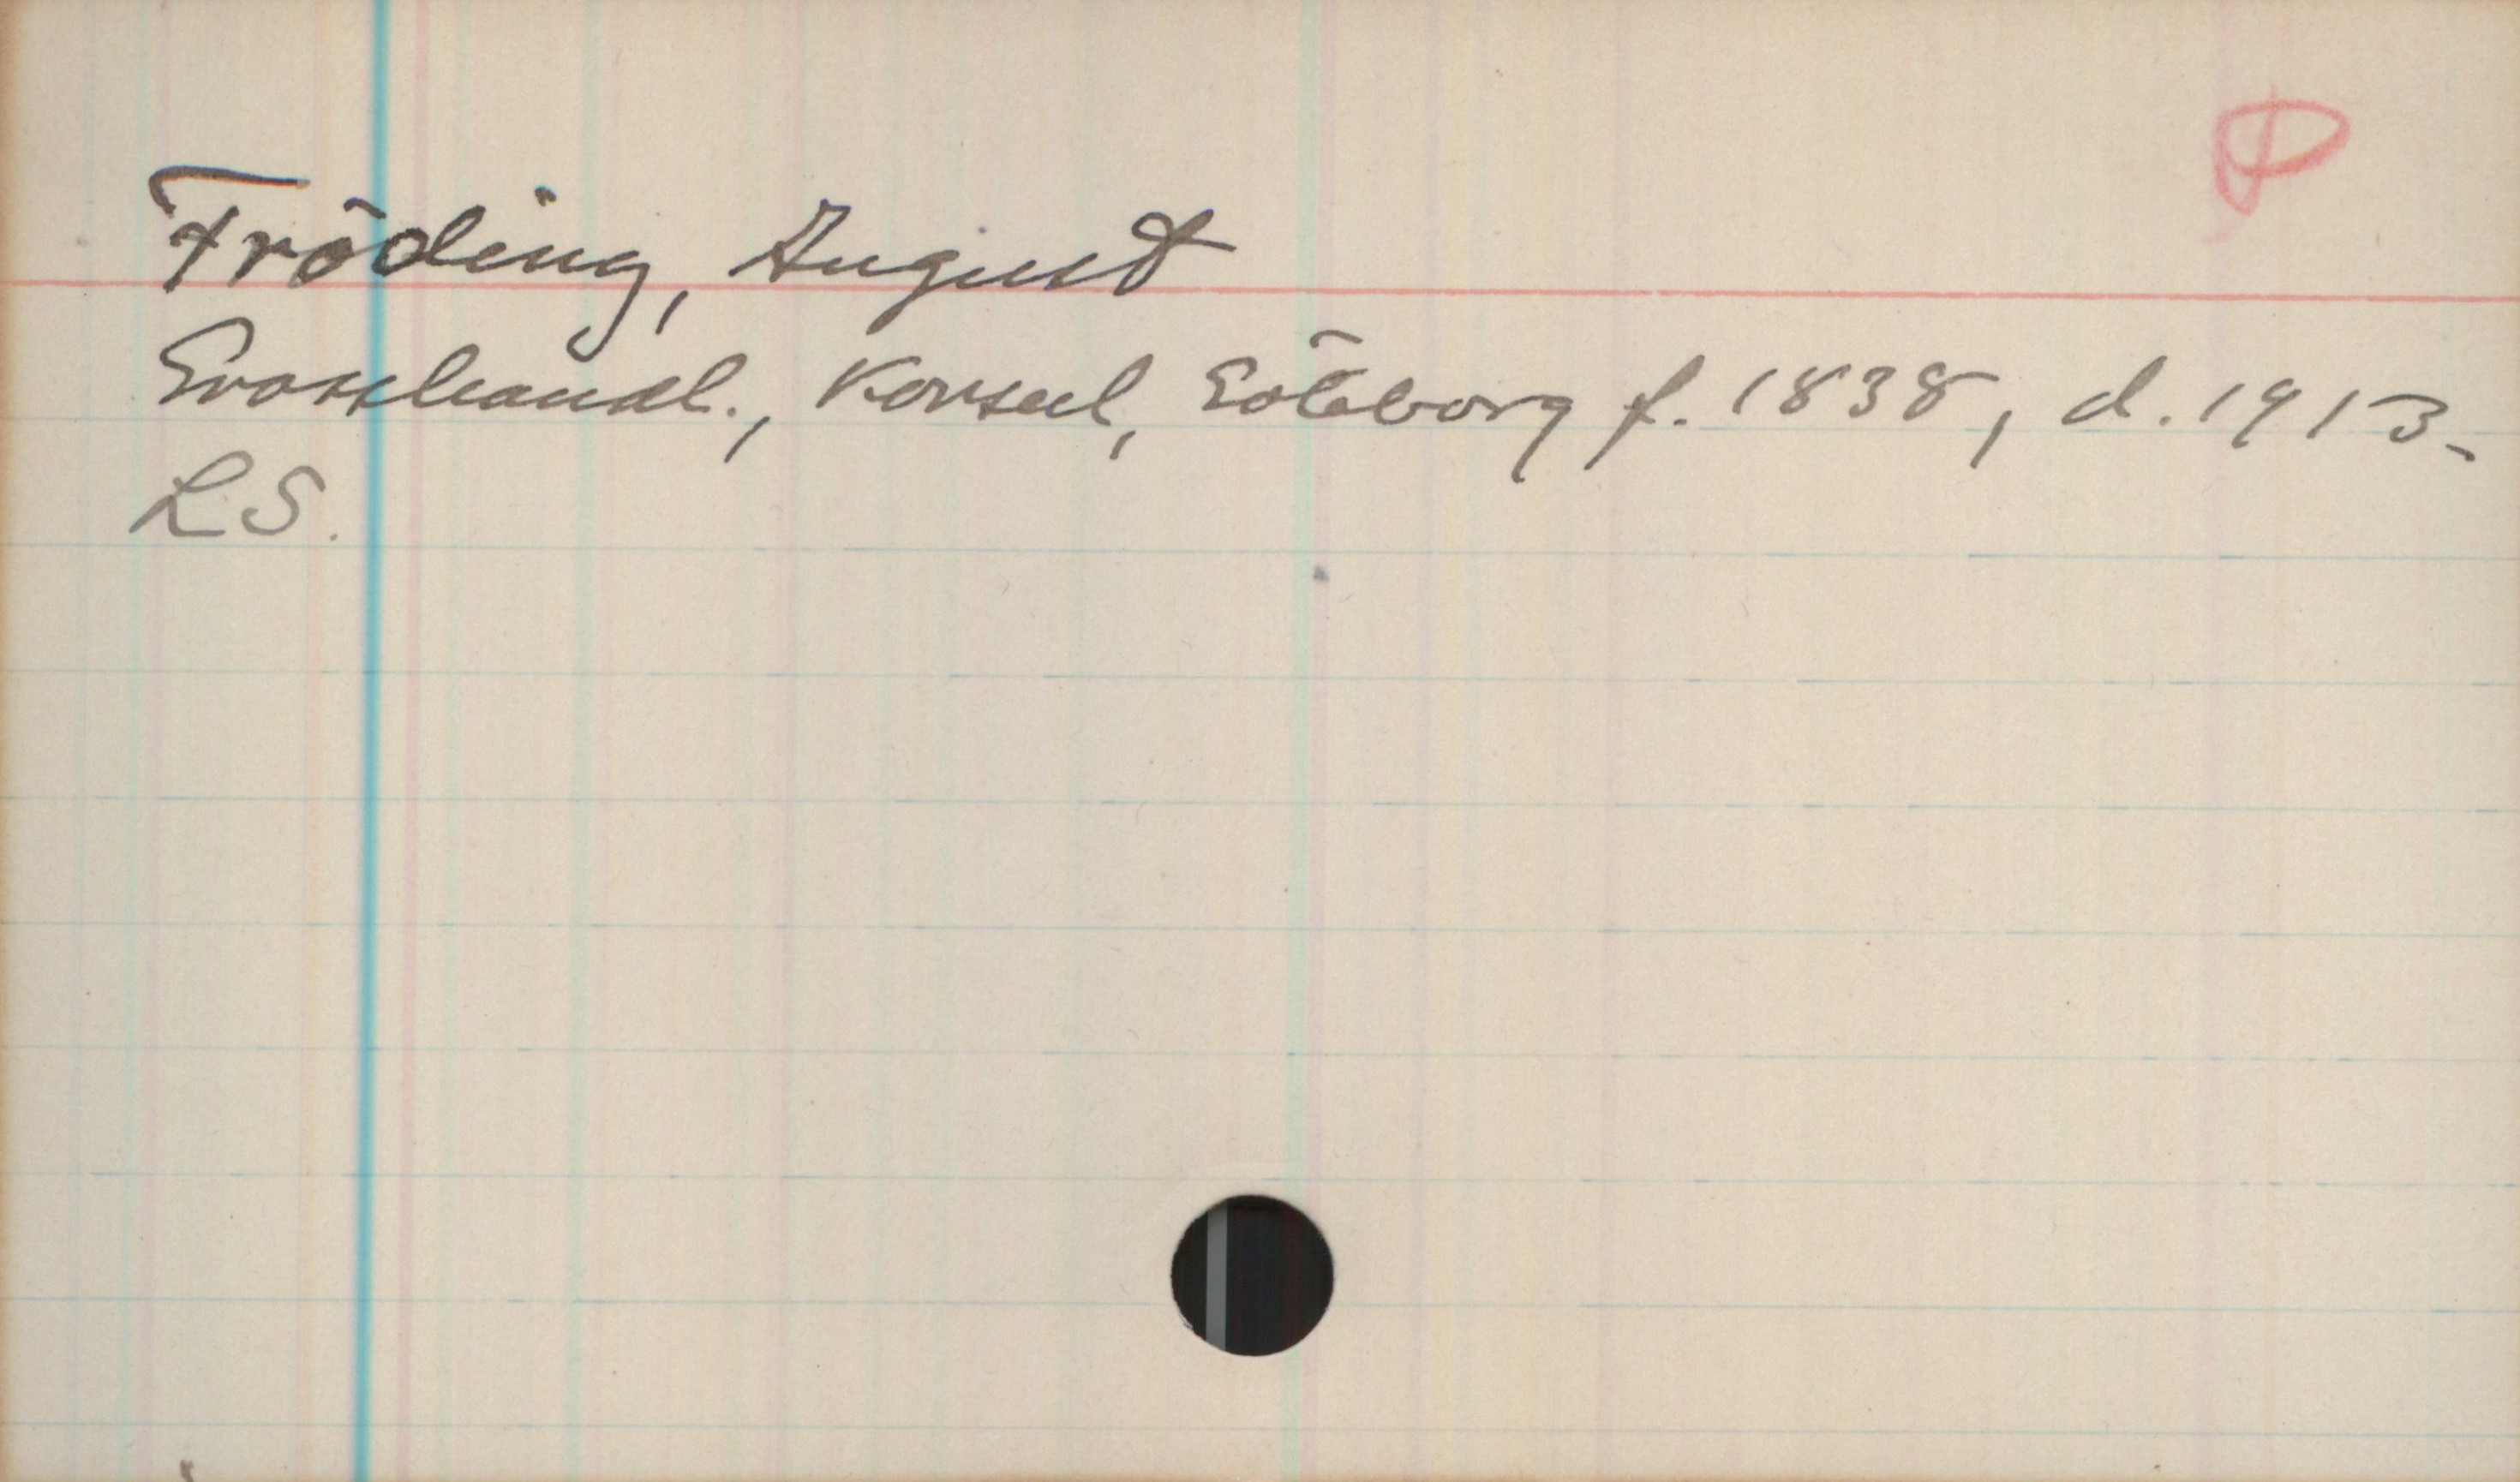 P
Fröding, August
Grosshandl., Konsul, Göteborg f. 1838, d. 1913.
LS.